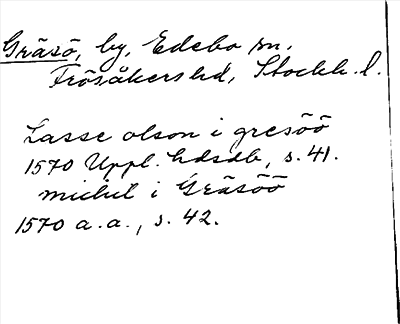 Gräsö, by, Edebo sn.
Frösåkers hd, Stockh. l.
Lasse olson i gresöö
1570 Uppl. hdsdb, s. 41.
michil i Gräsöö
1570 a. a., s. 42.